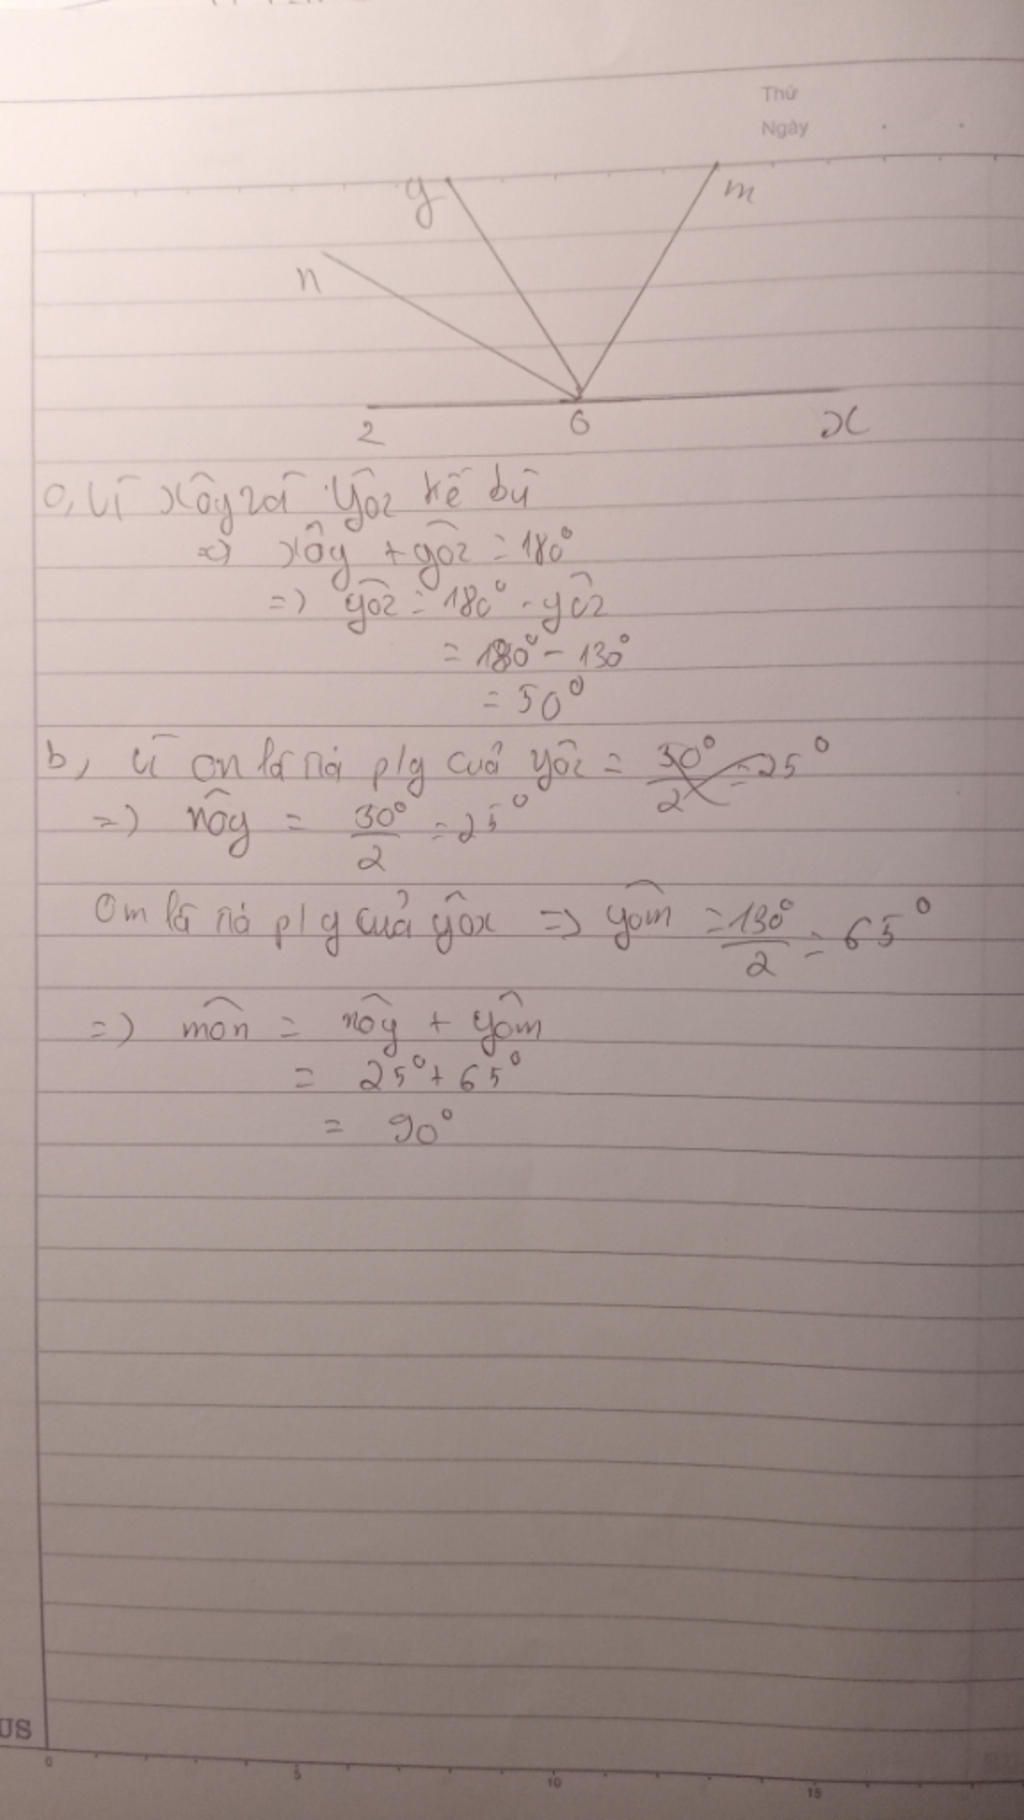 Thứ
Ngày
y
m
n
z
O
x
a, Vì xôy và yôz kề bù
=> xôy + yôz = 180°
=> yôz = 180° - yôz
= 180° - 130°
= 50°
b, Vì on là tia p/g của yôz = 50°/2 = 25°
=> nôy = 50°/2 = 25°
Om là tia p/g của yôx => yôm = 130°/2 = 65°
=> môn = nôy + yôm
= 25° + 65°
= 90°
US
0 5 10 15